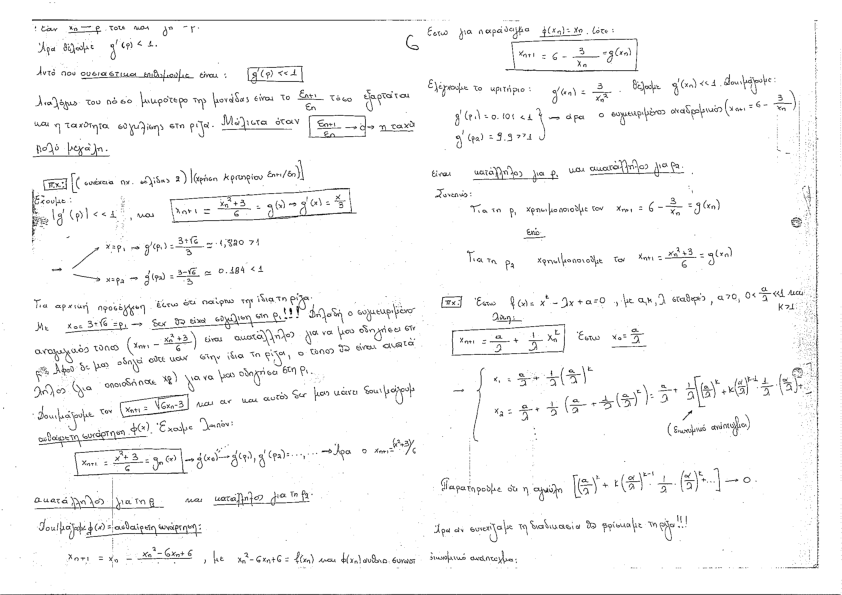 : Εάν xₙ → ρ τότε και
Άρα θέλουμε g'(ρ) < 1.
Αυτό που ουσιαστικά επιθυμούμε είναι : g'(ρ) << 1
Αναλόγως του πόσο μικρότερο της μονάδας είναι το εₙ₊₁/εₙ τόσο εξαρτάται
και η ταχύτητα σύγκλισης στη ρίζα. Μάλιστα όταν εₙ₊₁/εₙ → 0 → η ταχύ
πολύ μεγάλη.
πχ: [( συνέχεια πχ. σελίδας 2) | (χρήση κριτηρίου εₙ₊₁/εₙ)]
Έχουμε :
|g'(ρ)| << 1 , και xₙ₊₁ = (xₙ² + 3)/6 = g(x) ⇒ g'(x) = x/3
x = ρ₁ → g'(ρ₁) = (3+√6)/3 ≃ 1,820 > 1
→
x = ρ₂ → g'(ρ₂) = (3-√6)/3 ≃ 0.184 < 1
Για αρχική προσέγγιση έστω ότι παίρνω την ίδια τη ρίζα.
Με x₀ = 3+√6 = ρ₁ → δεν θα είναι σύγκλιση στη ρ₁ !!! Δηλαδή ο συγκεκριμένο-
αναγωγικός τύπος (xₙ₊₁ - (xₙ²+3)/6) είναι ακατάλληλος για να μας οδηγήσει στη
Αφού δε μας οδηγεί ούτε καν στην ίδια τη ρίζα, ο τύπος θα είναι ακατά
λληλος (για οποιοδήποτε x₀) για να μας οδηγήσει στη ρ₁.
Δοκιμάζουμε τον xₙ₊₁ = √(6xₙ-3) και αν και αυτός δεν μας κάνει δοκιμάζουμ
αυθαίρετη συνάρτηση φ(x). Έχουμε λοιπόν:
xₙ₊₁ = (x²+3)/6 = gₙ(x) → g'(x₀) → g'(ρ₁), g'(ρ₂) = ..., ... → Άρα ο xₙ₊₁ = (x²+3)/6
ακατάλληλος για τη ρ₁ και κατάλληλος για τη ρ₂.
Δοκιμάζουμε φ(x) = αυθαίρετη συνάρτηση:
xₙ₊₁ = xₙ - (xₙ² - 6xₙ + 6)/ , με xₙ² - 6xₙ + 6 = f(xₙ) και φ(xₙ) αυθαιρ. συναρτ
6
Έστω για παράδειγμα φ(xₙ) = xₙ. τότε:
xₙ₊₁ = 6 - 3/xₙ = g(xₙ)
Ελέγχουμε το κριτήριο : g'(xₙ) = 3/xₙ² . Θέλουμε g'(xₙ) << 1. Δοκιμάζουμε:
g'(ρ₁) = 0.101 < 1
→ άρα ο συγκεκριμένος αναδρομικός (xₙ₊₁ = 6 - 3/xₙ)
g'(ρ₂) = 9.9 >> 1
είναι κατάλληλος για ρ₁ και ακατάλληλος για ρ₂.
Συνεπώς:
Για τη ρ₁ χρησιμοποιούμε τον xₙ₊₁ = 6 - 3/xₙ = g(xₙ)
ενώ
Για τη ρ₂ χρησιμοποιούμε τον xₙ₊₁ = (xₙ²+3)/6 = g(xₙ)
πχ: Έστω f(x) = xᵏ - λx + α = 0 , με α, κ, λ σταθερές, α>0, 0 < α/λ << 1 και
κ>1
Λύση:
xₙ₊₁ = α/λ + 1/λ xₙᵏ Έστω x₀ = α/λ
→ x₁ = α/λ + 1/λ (α/λ)ᵏ
x₂ = α/λ + 1/λ (α/λ + 1/λ (α/λ)ᵏ)ᵏ = α/λ + 1/λ [(α/λ)ᵏ + κ(α/λ)ᵏ⁻¹ · 1/λ · (α/λ)ᵏ +
(διωνυμικό ανάπτυγμα)
Παρατηρούμε ότι η αγκύλη [(α/λ)ᵏ + κ(α/λ)ᵏ⁻¹ · 1/λ · (α/λ)ᵏ + ...] → 0.
Άρα αν συνεχίζαμε τη διαδικασία θα βρίσκαμε τη ρίζα !!!
διωνυμικό ανάπτυγμα: